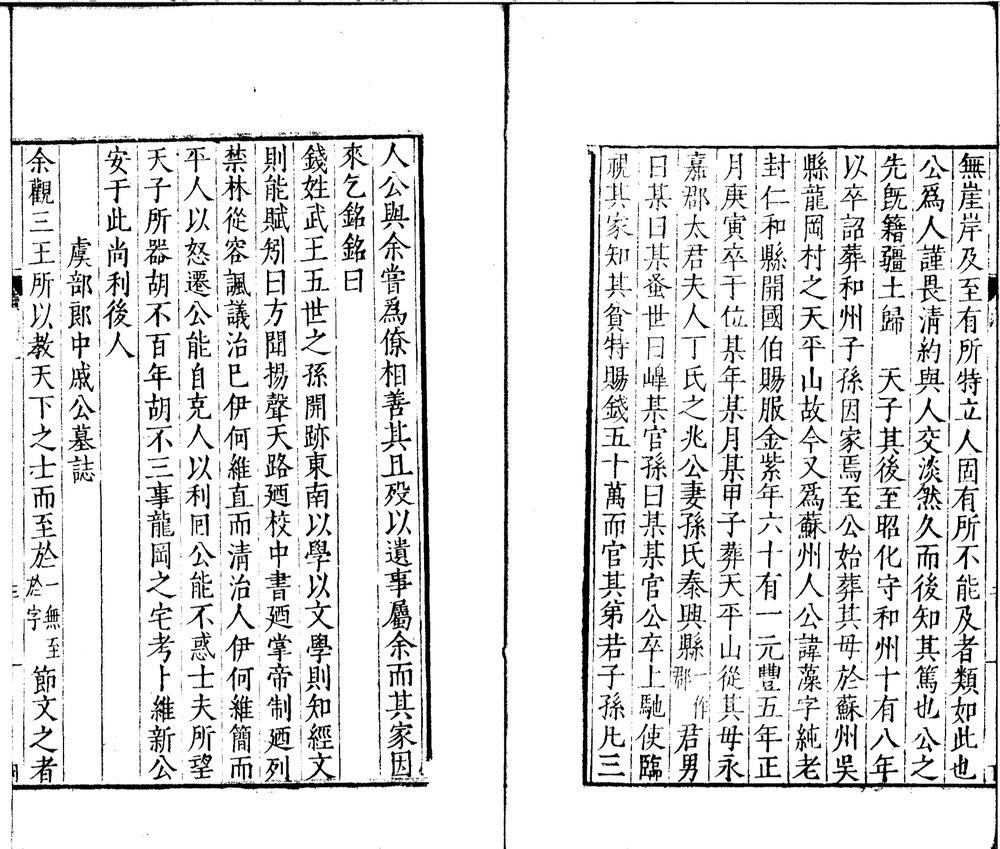 無崖岸及至有所特立人固有所不能及者類如此也
公爲人謹畏清約與人交淡然久而後知其篤也公之
先旣籍疆土歸　天子其後至昭化守和州十有八年
以卒詔葬和州子孫因家焉至公始葬其母於蘇州吳
縣龍岡村之天平山故今又爲蘇州人公諱藻字純老
封仁和縣開國伯賜服金紫年六十有一元豐五年正
月庚寅卒于位某年某月某甲子葬天平山從其母永
嘉郡太君夫人丁氏之兆公妻孫氏秦興縣一作郡君男
曰某曰某蚤世曰峰某官孫曰某某官公卒上馳使臨
視其家知其貧特賜錢五十萬而官其弟若子孫凡三
人公與余嘗爲僚相善其且歿以遺事屬余而其家因
來乞銘銘曰
錢姓武王五世之孫開跡東南以學以文學則知經文
則能賦矧曰方聞揚聲天路廼校中書廼掌帝制廼列
禁林從容諷議治巳伊何維直而清治人伊何維簡而
平人以怒遷公能自克人以利囘公能不惑士夫所望
天子所器胡不百年胡不三事龍岡之宅考卜維新公
安于此尚利後人
虞部郎中戚公墓誌
余觀三王所以教天下之士而至於一無至於字節文之者